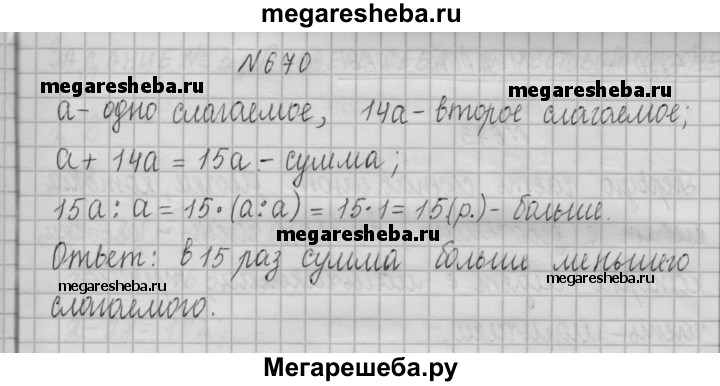 megaresheba.ru
№670
megaresheba.ru
megaresheba.ru
а - одно слагаемое, 14а - второе слагаемое;
а + 14а = 15а - сумма;
15а : а = 15·(а:а) = 15·1 = 15(р.) - больше.
megaresheba.ru
Ответ: в 15 раз сумма больше меньшего
megaresheba.ru
megaresheba.ru
слагаемого.
Мегарешеба.ру